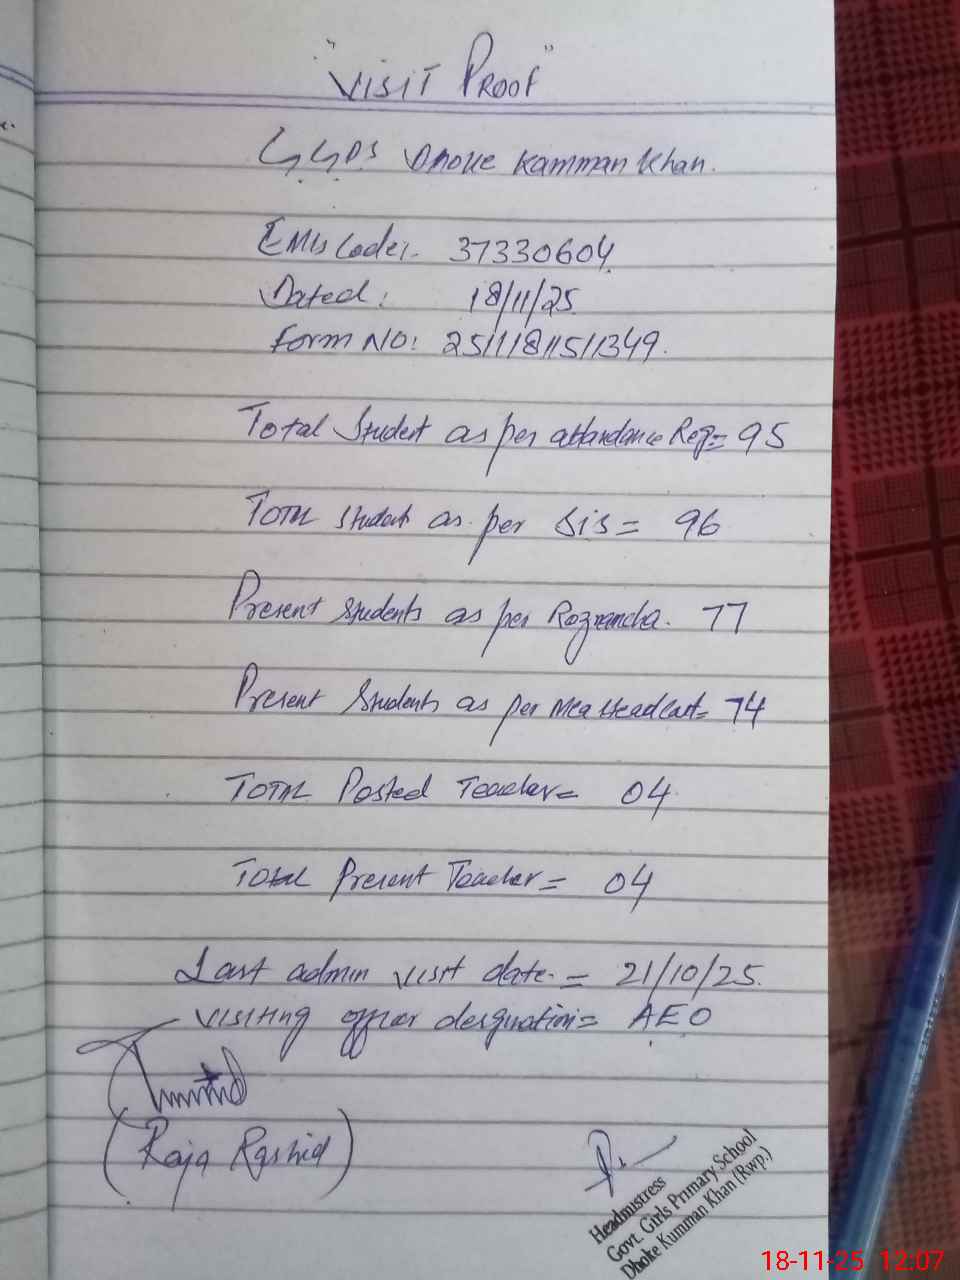 "VISIT PROOF"
GGPS Dhoke Kamman Khan.
EMIS Code:- 37330604
Dated: 18/11/25
Form NO: 25111811511349.
Total Student as per attandance Reg= 95
Total Students as per SIS= 96
Present Students as per Roznamcha. 77
Present Students as per Mea Headcount= 74
Total Posted Teacher= 04
Total Present Teacher= 04
Last admin visit date.= 21/10/25.
Visiting officer designation= AEO
(Raja Rashid)
Headmistress
Govt. Girls Primary School
Dhoke Kumman Khan (Rwp.)
18-11-25 12:07